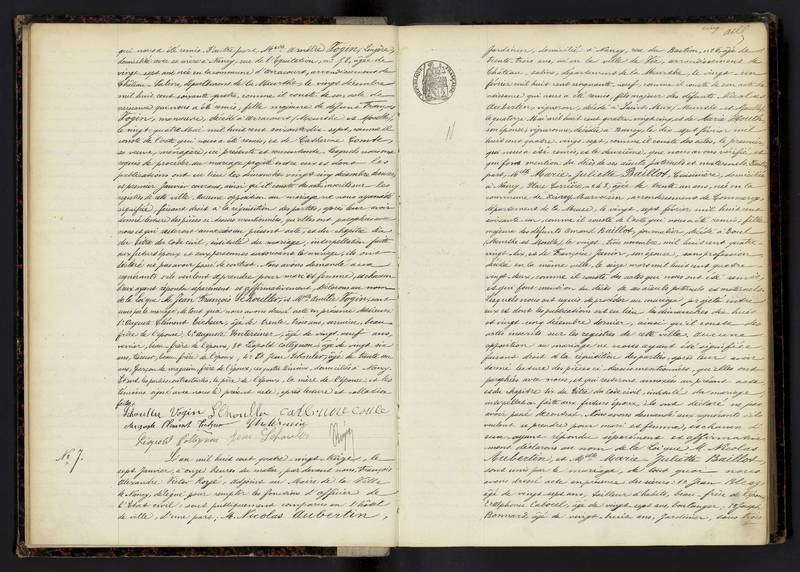 qui nous a été remis. D'autre part, Melle Amélie Vogin, lingère,
domiciliée avec sa mère à Nancy, rue de l'Equitation, no 78, âgée de
vingt sept ans, née en la commune d'Arracourt, arrondissement de
Château-Salins, département de la Meurthe, le vingt décembre
mil huit cent soixante quatre, comme il conste de son acte de
naissance qui nous a été remis, fille majeure de défunt François
Vogin, manoeuvre, décédé à Arracourt, Meurthe et Moselle,
le vingt quatre Mai mil huit cent soixante dix sept, comme il
conste de l'acte qui nous a été remis, et de Catherine Comte,
sa veuve, ménagère, ici présente et consentante. Lesquels nous ont
requis de procéder au mariage projeté entre eux et dont les
publications ont eu lieu les dimanches vingt cinq décembre dernier
et premier Janvier courant, ainsi qu'il conste des actes inscrits sur les
registres de cette ville. Aucune opposition au mariage ne nous ayant été
signifiée, faisant droit à la réquisition des parties, après leur avoir
donné lecture des pièces ci dessus mentionnées, qu'elles ont paraphées avec
nous et qui resteront annexées au présent acte, et du chapitre six
du titre du Code civil, intitulé du mariage, interpellation faite
aux futurs époux et aux personnes autorisant le mariage, ils ont
déclaré ne pas avoir passé de contrat. Nous avons demandé aux
requérants s'ils veulent se prendre pour mari et femme, et chacun
d'eux ayant répondu séparément et affirmativement, déclarons au nom
de la loi que M. Jean François Schouller, et Melle Amélie Vogin, sont
unis par le mariage, de tout quoi nous avons dressé acte en présence des sieurs
Auguste Clément
beau
frère de l'épouse, 2o Auguste
âgé de vingt neuf ans,
ouvrier, beau frère de l'époux, 3o Léopold Collignon, âgé de vingt six
ans, tisseur, beau frère de l'époux, 4o Et Jean Schouller, âgé de trente un
ans, garçon de magasin, frère de l'époux, ces quatre témoins, domiciliés à Nancy.
Et ont, les parties contractantes, le père de l'époux, la mère de l'épouse, et les
témoins signé avec nous le présent acte, après lecture et collation
faites.
Schouller Vogin Schouller Catherine Comte
Léopold Collignon Jean Schouller
No 7.
L'an mil huit cent quatre vingt treize, le
sept Janvier, à onze heures du matin, par devant nous, François
Alexandre Victor
adjoint au Maire de la Ville
de Nancy, délégué pour remplir les fonctions d'officier de
l'Etat civil : sont publiquement comparus en l'hôtel
de ville, d'une part, M. Nicolas Aubertin,
Jardinier, domicilié à Nancy, rue du Bastion, no 6, âgé de
trente trois ans, né en la ville de Vic, arrondissement de
Château-Salins, département de la Meurthe, le vingt un
février mil huit cent cinquante neuf, comme il conste de son acte de
naissance, qui nous a été remis, fils majeur des défunts Nicolas
Aubertin, vigneron, décédé à Saint Max, Meurthe et Moselle,
le quatorze Mai mil huit cent quatre vingt cinq, et de Marie
son épouse, vigneronne, décédée à Nancy, le dix sept février mil
huit cent quatre vingt sept, comme il conste des actes, le premier
qui nous a été remis, et le deuxième, que nous avons vérifié, et
qui font mention du décès de ses aïeuls paternels et maternels. D'autre
part, Melle Marie Juliette Baillot, cuisinière, domiciliée
à Nancy, Place Carrière, no 3, âgée de trente un ans, née en la
commune de Sivry
arrondissement de Commercy,
département de la Meuse, le vingt sept février mil huit cent
soixante un, comme il conste de l'acte qui nous a été remis, fille
majeure des défunts Amand Baillot, journalier, décédé à Toul,
Meurthe et Moselle, le vingt trois novembre mil huit cent quatre
vingt dix, et de Françoise
son épouse, sans profession,
décédée en la même ville, le seize novembre mil huit cent quatre
vingt deux, comme il conste des actes qui nous ont été remis,
et qui font mention du décès de ses aïeuls paternels et maternels.
Lesquels nous ont requis de procéder au mariage projeté entre
eux et dont les publications ont eu lieu les dimanches dix huit
et vingt cinq décembre dernier, ainsi qu'il conste des
actes inscrits sur les registres de cette ville. Aucune
opposition au mariage ne nous ayant été signifiée,
faisant droit à la réquisition des parties, après leur avoir
donné lecture des pièces ci dessus mentionnées, qu'elles ont
paraphées avec nous, et qui resteront annexées au présent acte,
et du chapitre six du titre du Code civil, intitulé du mariage,
interpellation faite aux futurs époux, ils ont déclaré ne pas
avoir passé de contrat. Nous avons demandé aux requérants s'ils
veulent se prendre pour mari et femme, et chacun
d'eux ayant répondu séparément et affirmative-
ment, déclarons au nom de la loi que M. Nicolas
Aubertin, et Melle Marie Juliette Baillot
sont unis par le mariage, de tout quoi nous
avons dressé acte en présence des sieurs : 1o Jean
âgé de vingt sept ans, tailleur d'habits, beau frère de l'épouse,
2o Alphonse
âgé de vingt sept ans, boulanger, 3o Joseph
Bonnard, âgé de vingt trois ans, Jardinier, tous trois